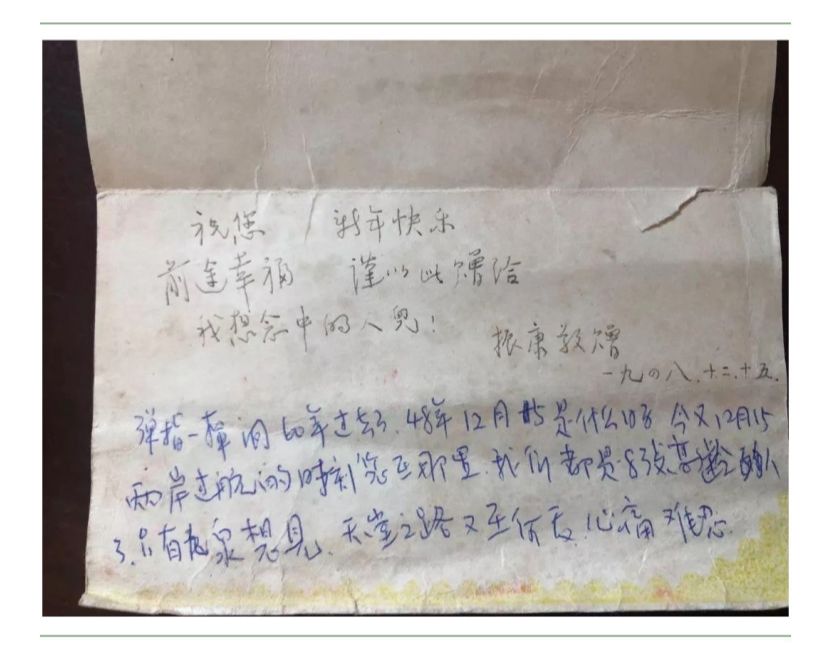 祝您 新年快乐
前途幸福 谨以此赠给
我想念中的人儿！
振康敬赠
一九四八.十二.十五.
弹指一挥间60年过去了.48年12月15是什么日子 今又12月15
两岸通航的时刻您在那里.我们都是8张高龄的人
了.只有九泉想见.天堂之路又在何方.心痛难忍.